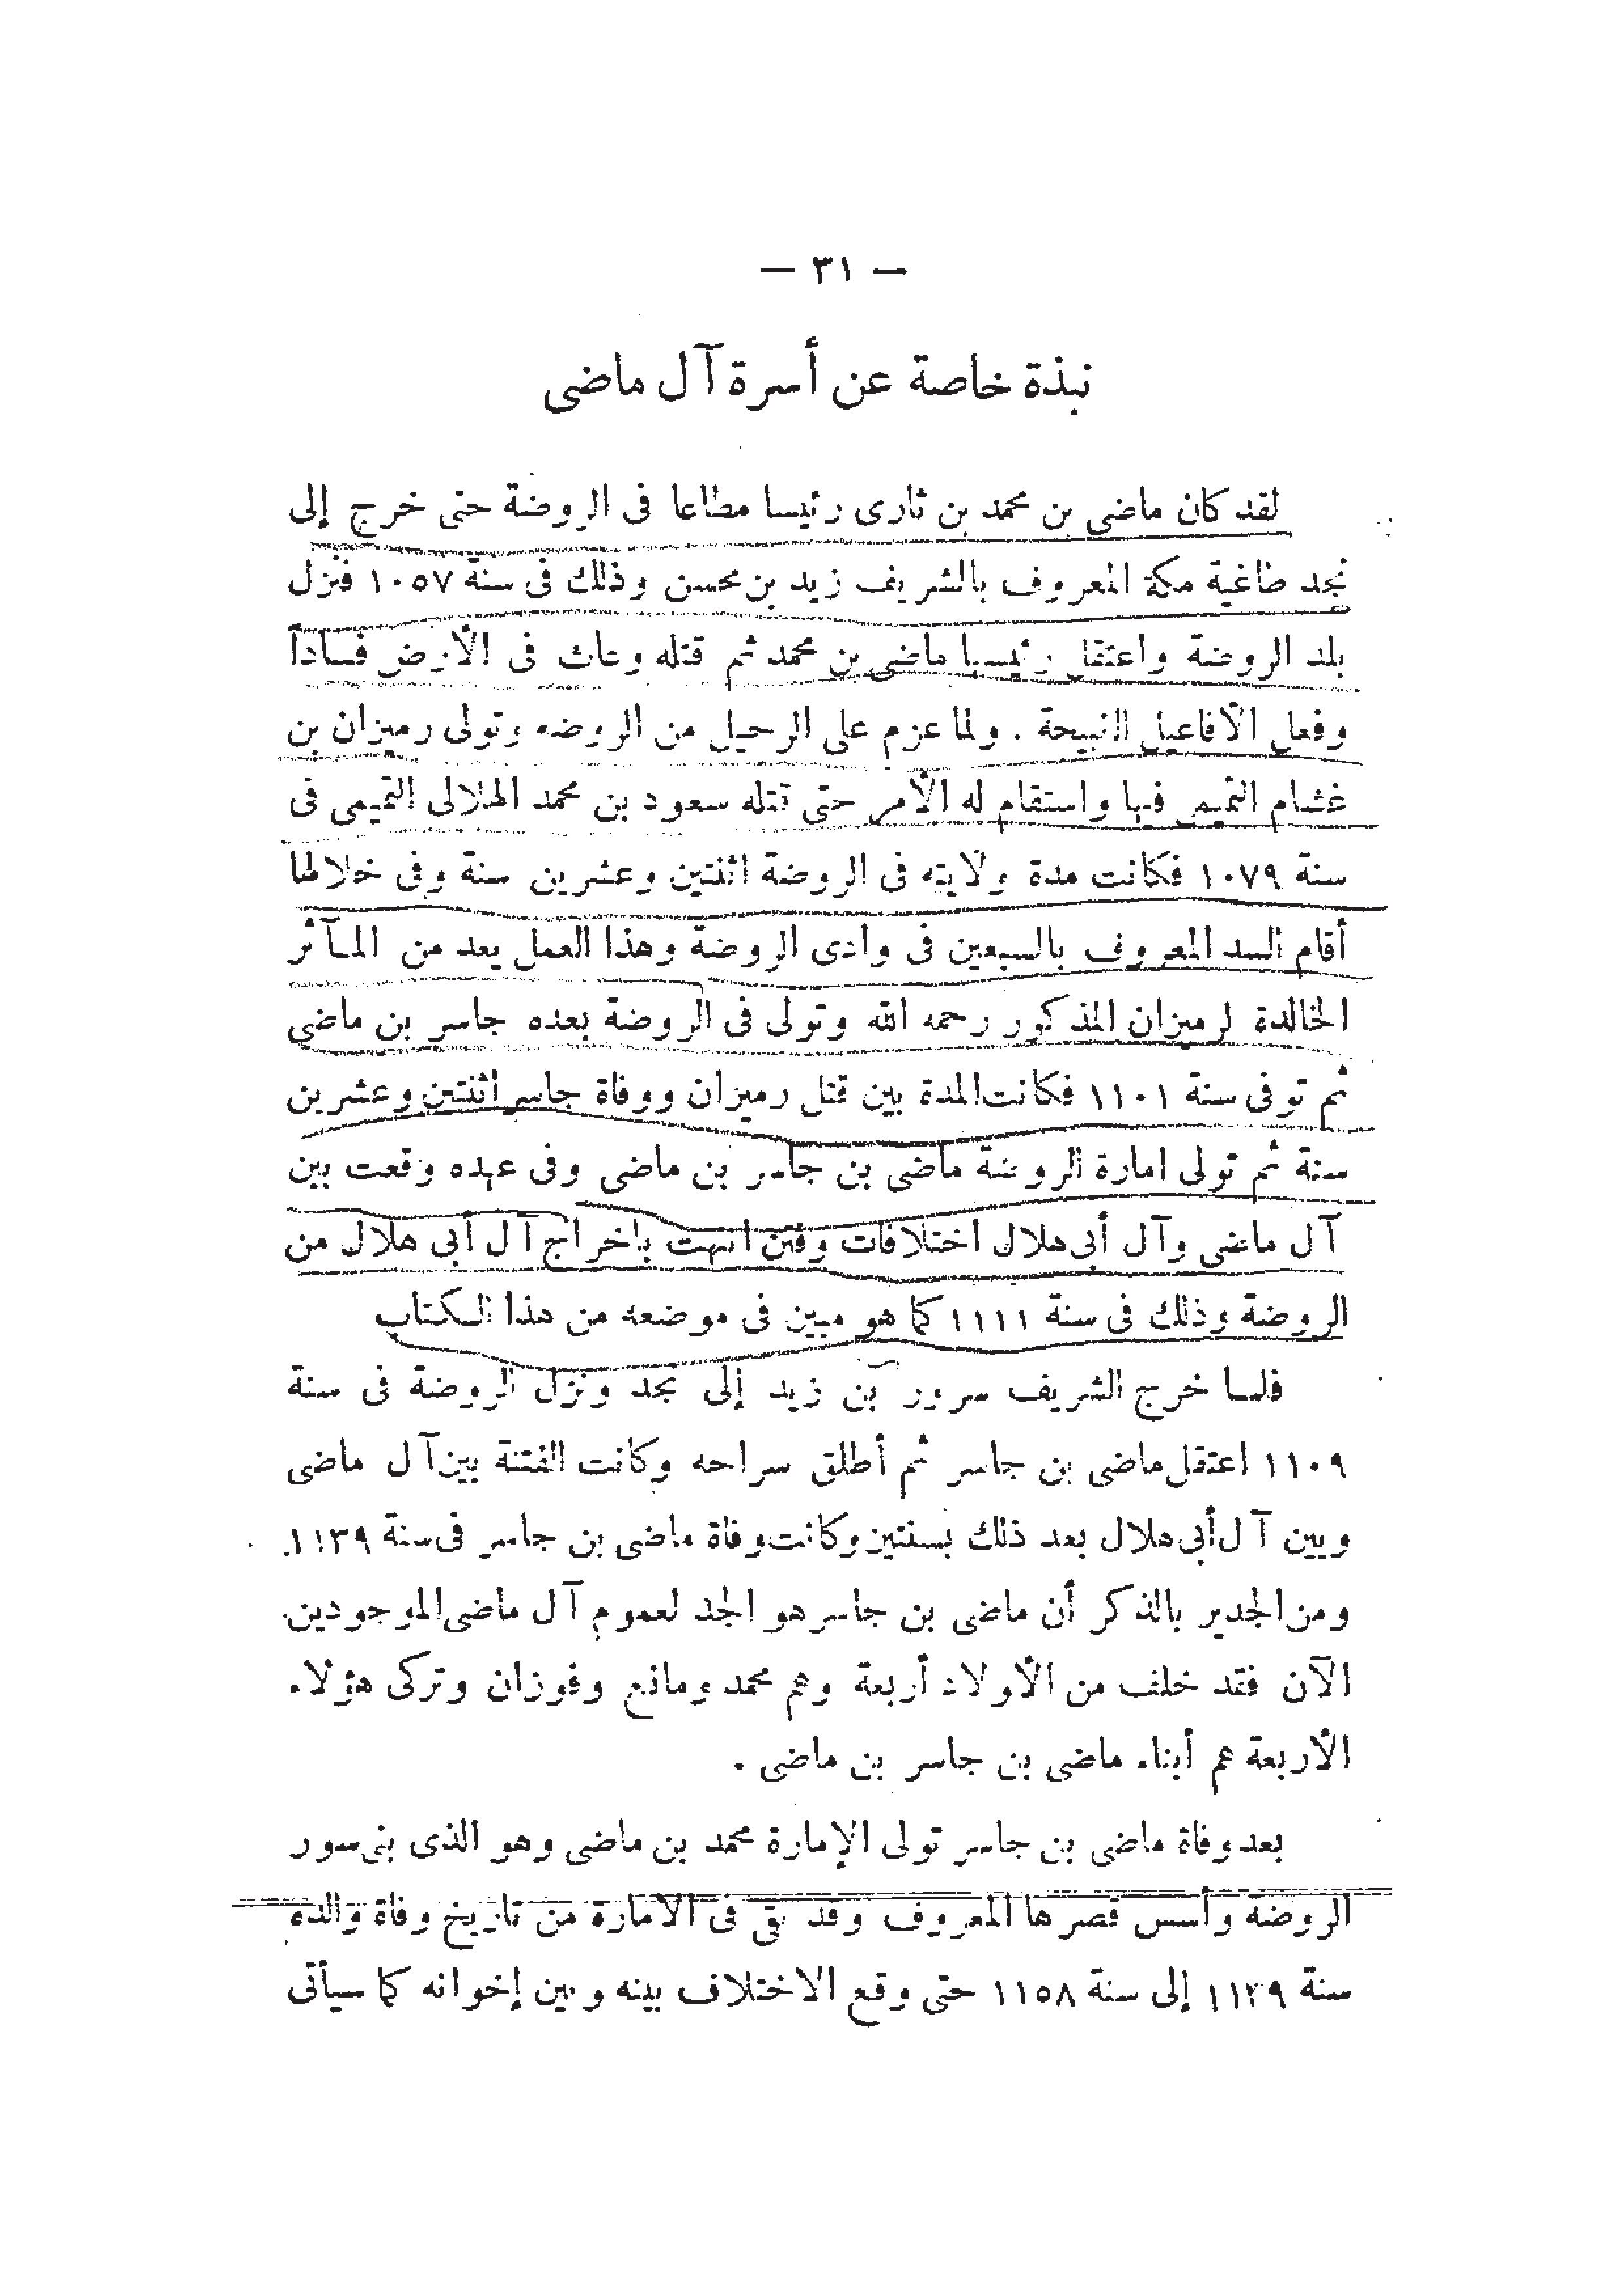 — ٣١ —
نبذة خاصة عن أسرة آل ماضى
لقد كان ماضى بن محمد بن ثارى رئيسا مطاعا فى الروضة حتى خرج إلى
نجد طاغية مكة المعروف بالشريف زيد بن محسن وذلك فى سنة ١٠٥٧ فنزل
بلد الروضة واعتقل رئيسها ماضى بن محمد ثم قتله وعاث فى الأرض فساداً
وفعل الأفاعيل القبيحة . ولما عزم على الرحيل من الروضه وتولى رميزان بن
غشام التميمى فيها واستقام له الأمر حتى قتله سعود بن محمد الهلالى التميمى فى
سنة ١٠٧٩ فكانت مدة ولايته فى الروضة اثنتين وعشرين سنة وفى خلالها
أقام السد المعروف بالسبعين فى وادى الروضة وهذا العمل يعد من المـآثر
الخالدة لرميزان المذكور رحمه الله وتولى فى الروضة بعده جاسر بن ماضى
ثم توفى سنة ١١٠١ فكانت المدة بين قتل رميزان ووفاة جاسر اثنتين وعشرين
سنة ثم تولى امارة الروضة ماضى بن جاسر بن ماضى وفى عهده وقعت بين
آل ماضى وآل أبى هلال اختلافات وفتن انتهت باخراج آل أبى هلال من
الروضة وذلك فى سنة ١١١١ كما هو مبين فى موضعه من هذا الـكتاب
فلمـا خرج الشريف سرور بن زيد إلى نجد ونزل الروضة فى سنة
١١٠٩ اعتقل ماضى بن جاسر ثم أطلق سراحه وكانت الفتنة بين آل ماضى
وبين آل أبى هلال بعد ذلك بسنتين وكانت وفاة ماضى بن جاسر فى سنة ١١٣٩
ومن الجدير بالذكر أن ماضى بن جاسر هو الجد لعموم آل ماضى الموجودين
الآن فقد خلف من الأولاد أربعة وهم محمد ومانع وفوزان وتركى هؤلاء
الأربعة هم أبناء ماضى بن جاسر بن ماضى .
بعد وفاة ماضى بن جاسر تولى الإمارة محمد بن ماضى وهو الذى بنى سور
الروضة وأسس قصرها المعروف وقد بقى فى الامارة من تاريخ وفاة والده
سنة ١١٣٩ إلى سنة ١١٥٨ حتى وقع الاختلاف بينه وبين إخوانه كما سيأتى